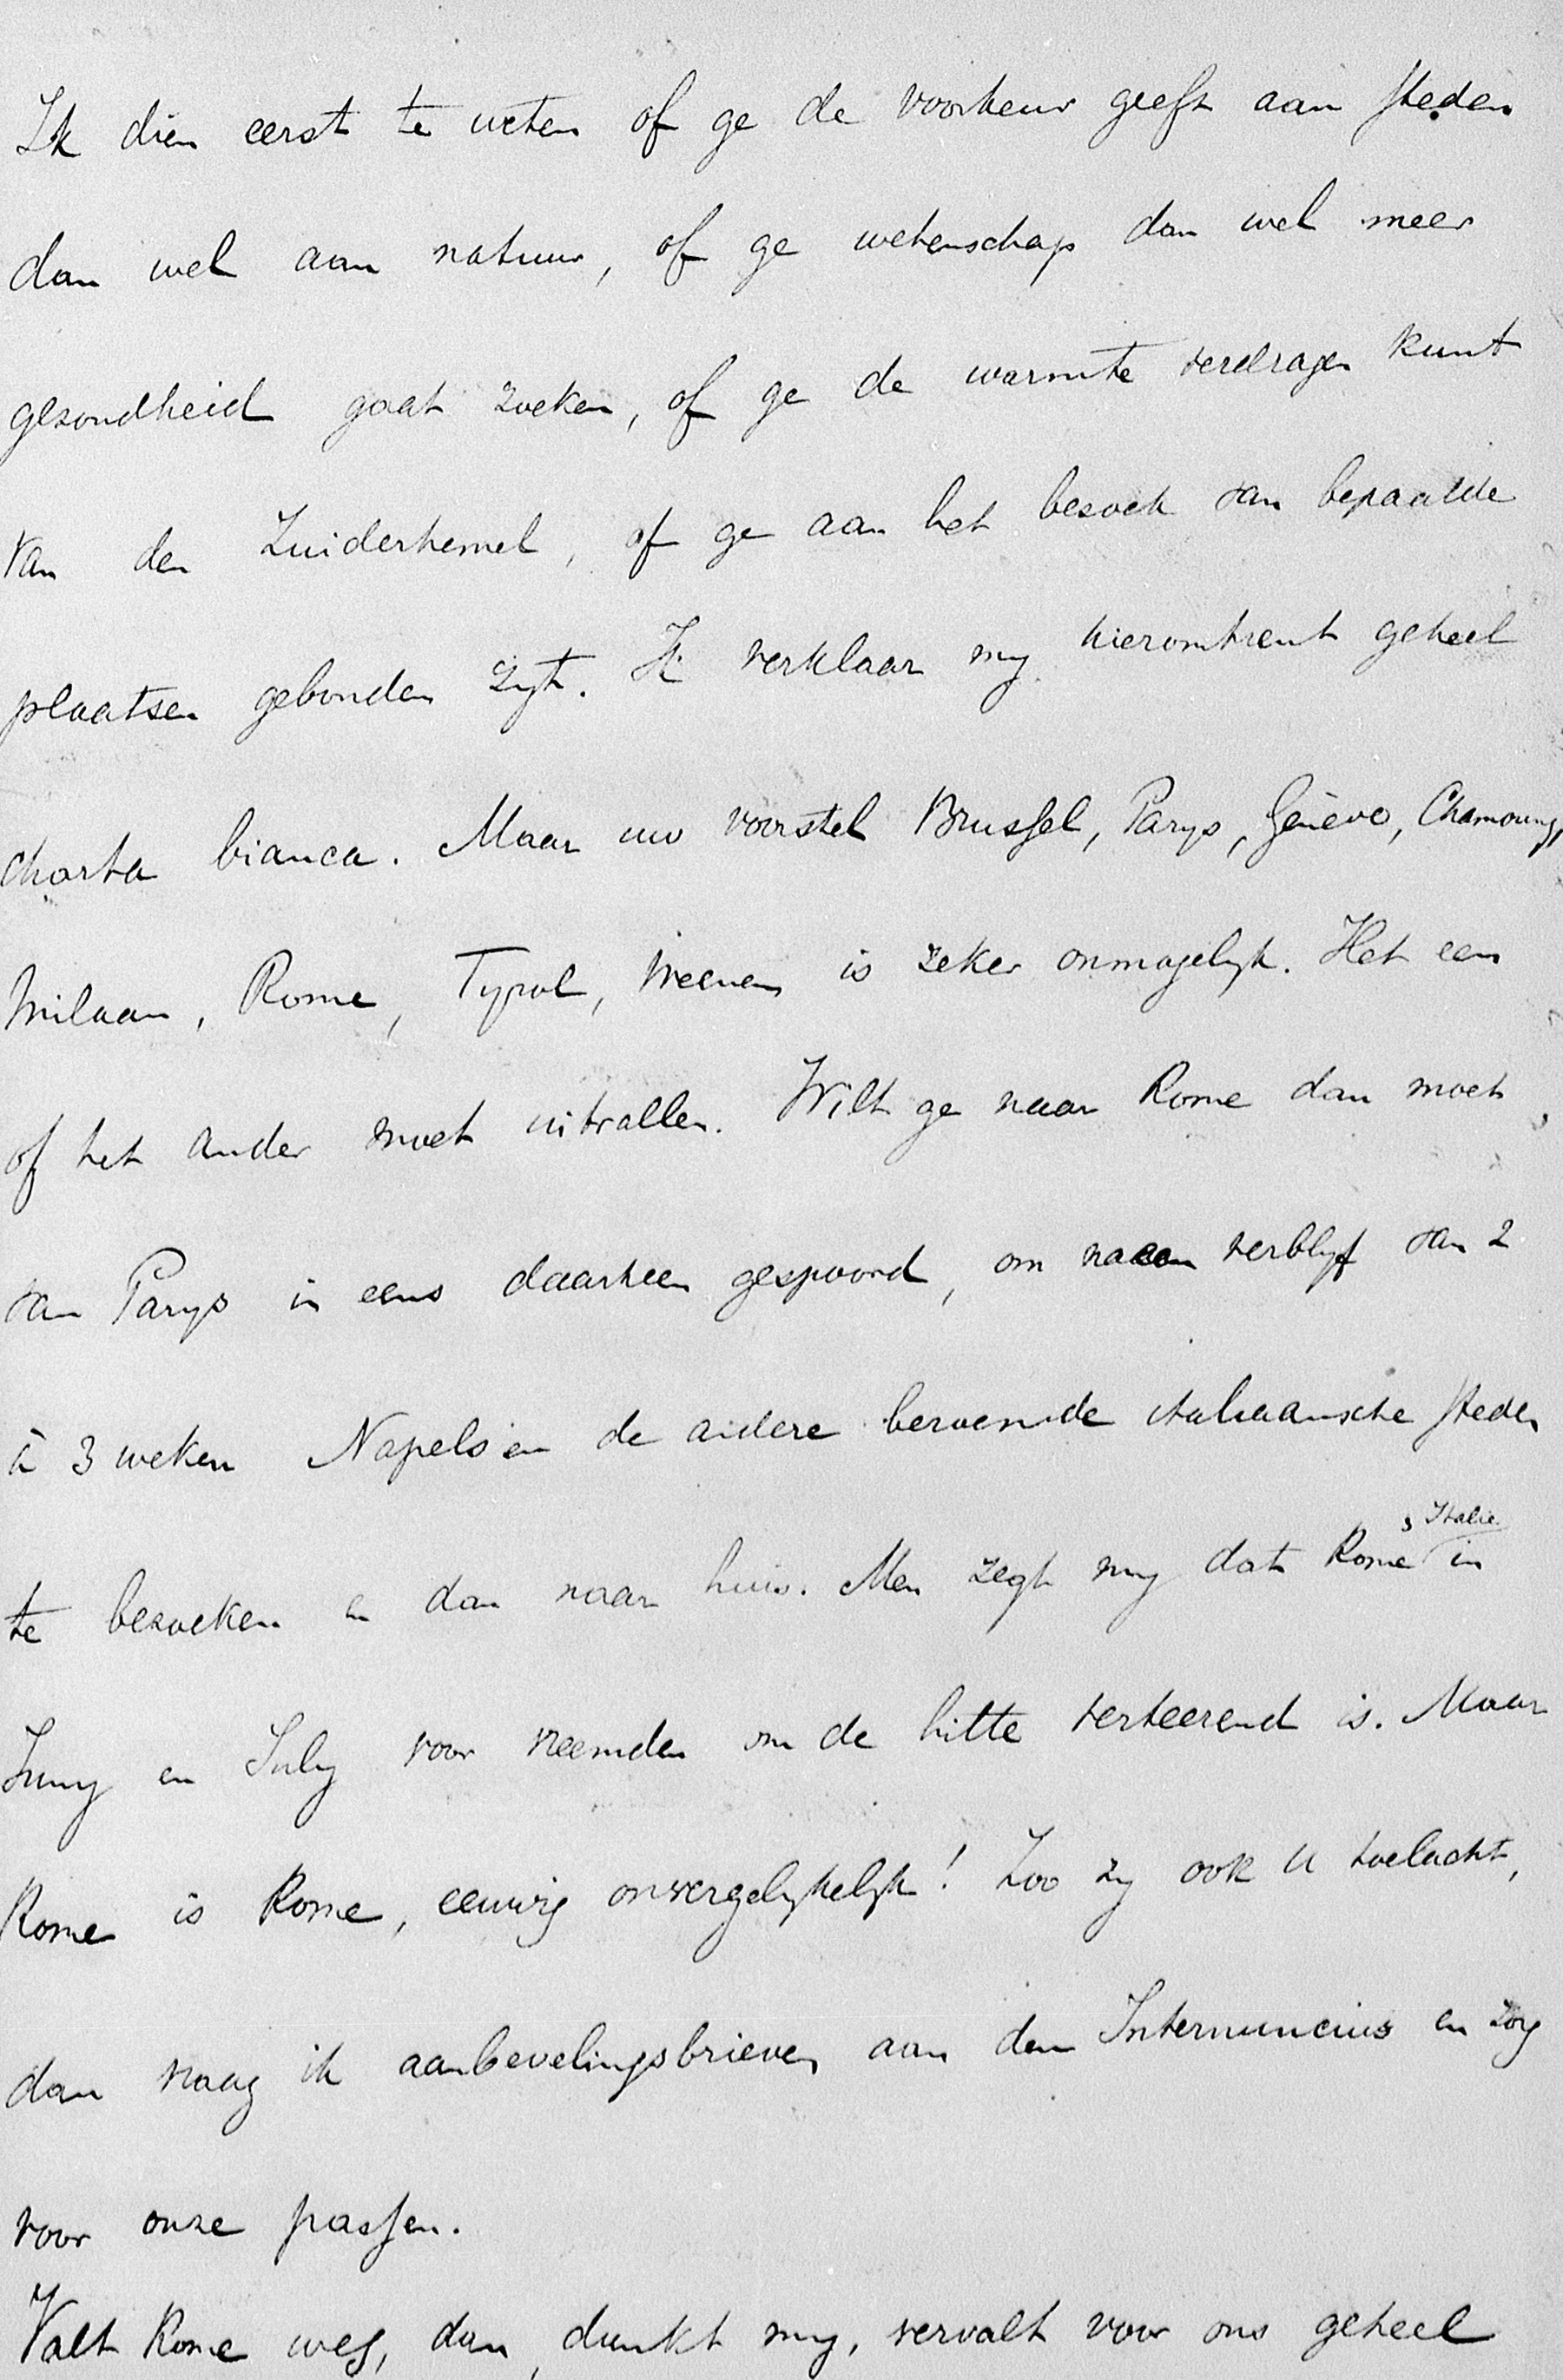 Ik dien eerst te weten of ge de voorkeur geeft aan steden
dan wel aan natuur, of ge wetenschap dan wel meer
gezondheid gaat zoeken, of ge de warmte verdragen kunt
van den Zuiderhemel, of ge aan het bezoek van bepaalde
plaatsen gebonden zyt. Ik verklaar my hieromtrent geheel
charta bianca. Maar uw voorstel Brussel, Parys, Genève, Chamouny,
Milaan, Rome, Tyrol, Weenen is zeker onmogelyk. Het een
of het ander moet uitvallen. Wilt ge naar Rome dan moet
van Parys in eens daarheen gespoord, om na een verblyf van 2
à 3 weken Napels en de andere beroemde italiaansche steden
te bezoeken en dan naar huis. Men zegt my dat Rome 's Italie in
Juny en July voor vreemden om de hitte verteerend is. Maar
Rome is Rome, eeuwig onvergelykelyk! Zoo zy ook U toelacht,
dan vraag ik aanbevelingsbrieven aan den Internuncius en zorg
voor onze passen.
Valt Rome weg, dan, dunkt my, vervalt voor ons geheel